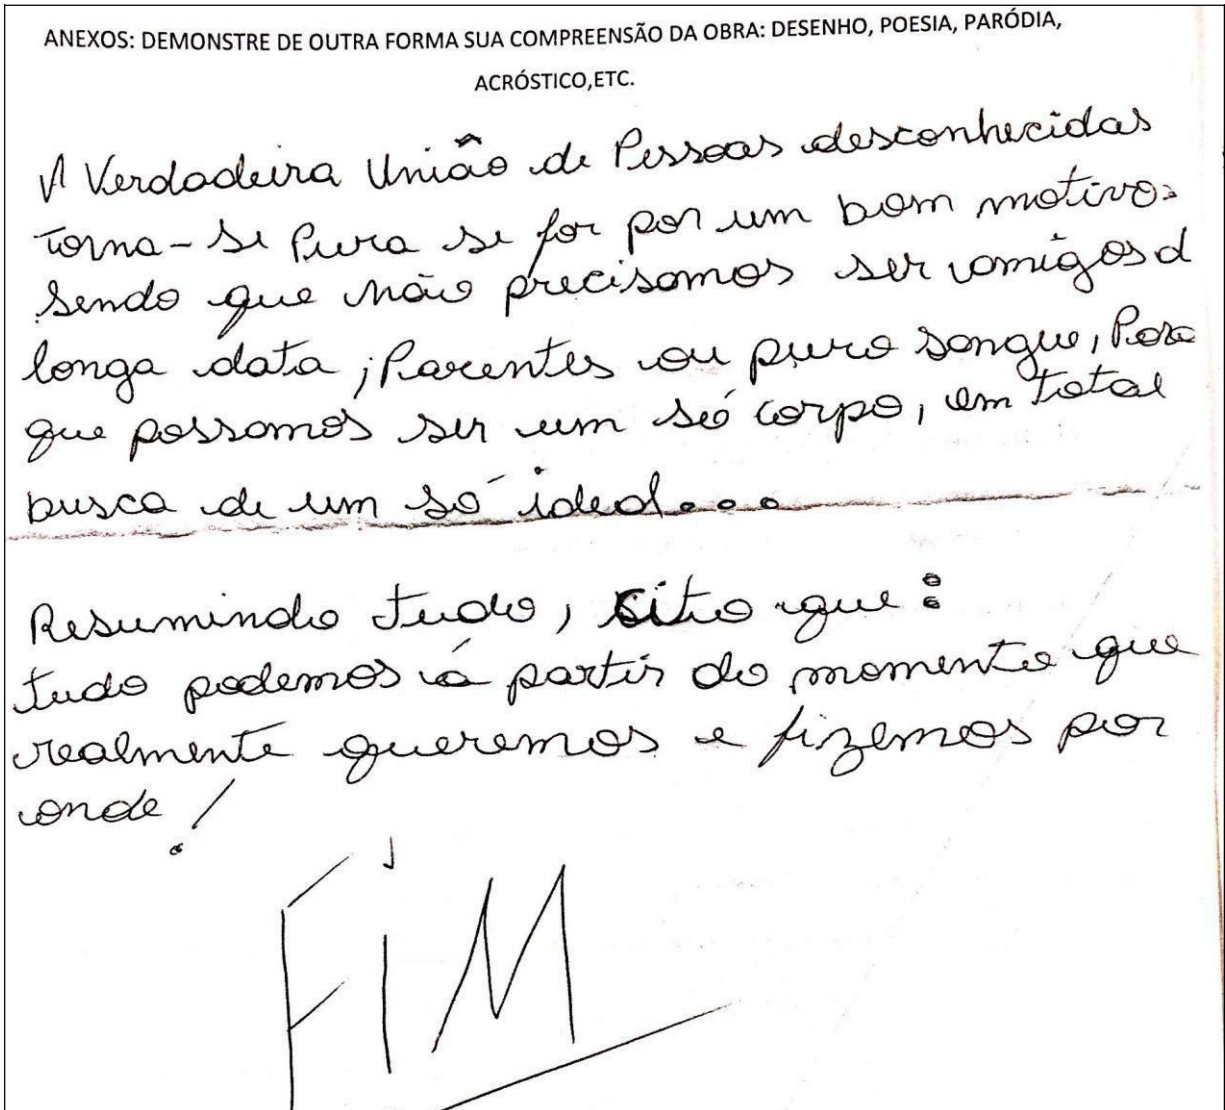 ANEXOS: DEMONSTRE DE OUTRA FORMA SUA COMPREENSÃO DA OBRA: DESENHO, POESIA, PARÓDIA,
ACRÓSTICO,ETC.
A Verdadeira União de Pessoas desconhecidas
torna-se Pura se for por um bom motivo.
sendo que não precisamos ser amigos d
longa data, Parentes ou puro sangue, Para
que possamos ser um só corpo, em total
busca de um só ideal...
Resumindo tudo, cito que:
tudo podemos á partir do momento que
realmente queremos e fizemos por
onde!
FIM